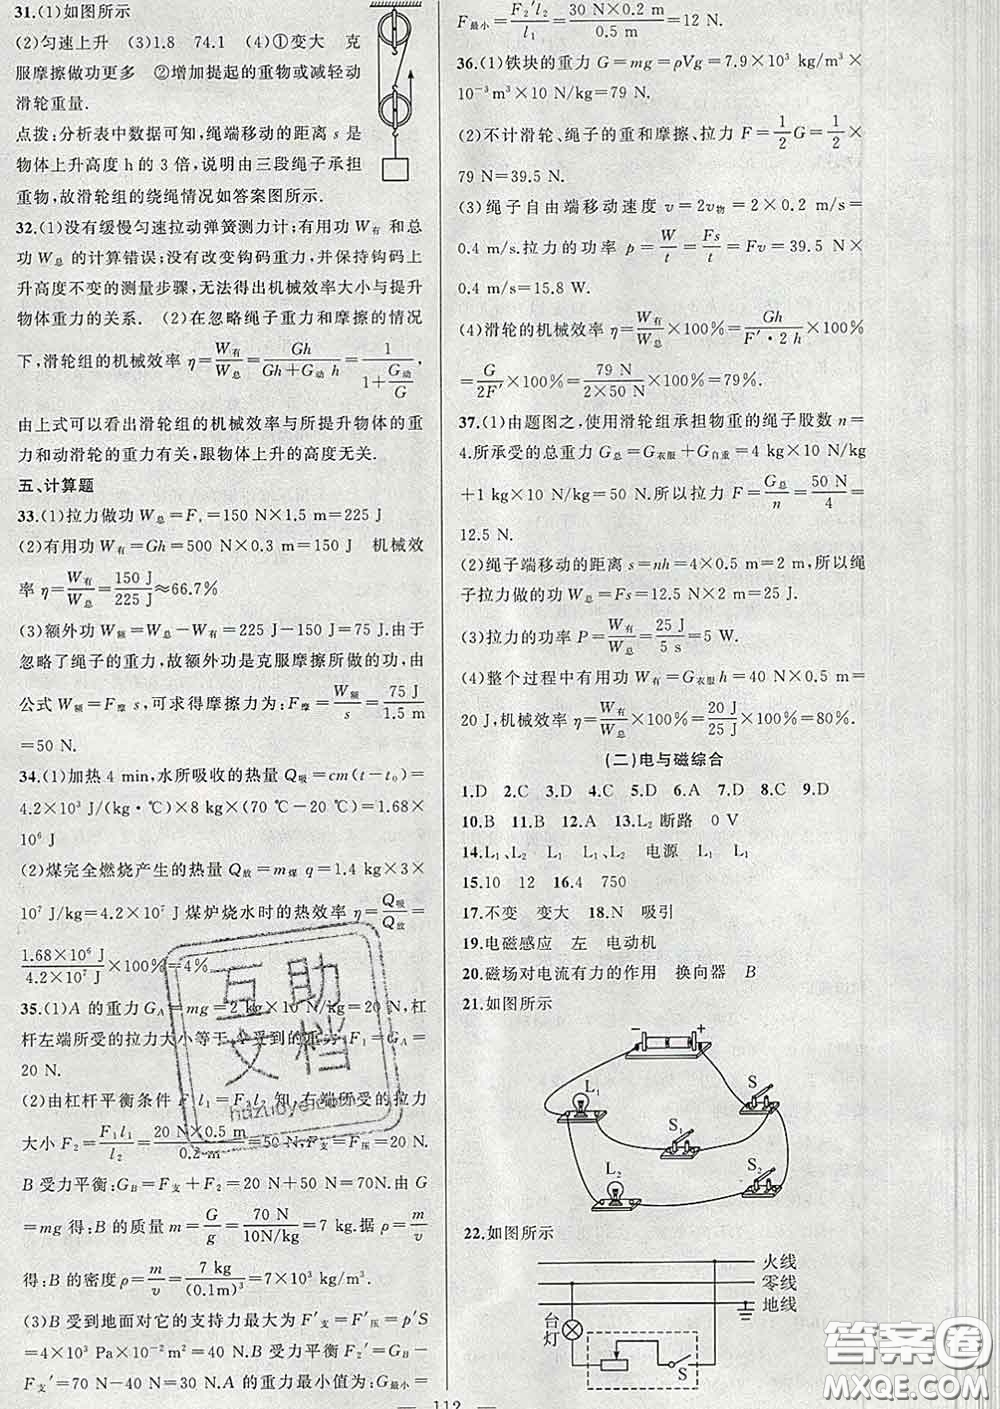 31.(1)如图所示
(2)匀速上升 (3)1.8 74.1 (4)①变大 克
服摩擦做功更多 ②增加提起的重物或减轻动
滑轮重量.
点拨:分析表中数据可知,绳端移动的距离 s 是
物体上升高度 h 的 3 倍,说明由三段绳子承担
重物,故滑轮组的绕绳情况如答案图所示.
32.(1)没有缓慢匀速拉动弹簧测力计;有用功 W有 和总
功 W总 的计算错误;没有改变钩码重力,并保持钩码上
升高度不变的测量步骤,无法得出机械效率大小与提升
物体重力的关系. (2)在忽略绳子重力和摩擦的情况
下,滑轮组的机械效率 η=W有/W总=Gh/(Gh+G动 h)=1/(1+G动/G),
由上式可以看出滑轮组的机械效率与所提升物体的重
力和动滑轮的重力有关,跟物体上升的高度无关.
五、计算题
33.(1)拉力做功 W总=Fs=150 N×1.5 m=225 J
(2)有用功 W有=Gh=500 N×0.3 m=150 J 机械效
率 η=W有/W总=150 J/225 J≈66.7%
(3)额外功 W额=W总-W有=225 J-150 J=75 J.由于
忽略了绳子的重力,故额外功是克服摩擦所做的功,由
公式 W额=F摩 s,可求得摩擦力为:F摩=W额/s=75 J/1.5 m
=50 N.
34.(1)加热 4 min,水所吸收的热量 Q吸=cm(t-t₀)=
4.2×10³ J/(kg·℃)×8 kg×(70 ℃-20 ℃)=1.68×
10⁶ J
(2)煤完全燃烧产生的热量 Q放=m煤 q=1.4 kg×3×
10⁷ J/kg=4.2×10⁷ J 煤炉烧水时的热效率 η=Q吸/Q放=
1.68×10⁶ J/4.2×10⁷ J×100%=4%
35.(1)A 的重力 G_A=mg=2 kg×10 N/kg=20 N,杠
杆左端所受的拉力大小等于 A 受到的重力 F₁=G_A=
20 N.
(2)由杠杆平衡条件 F₁l₁=F₂l₂ 知,右端所受的拉力
大小 F₂=F₁l₁/l₂=20 N×0.5 m/0.2 m=50 N,F支=F压=20 N.
B 受力平衡:G_B=F支+F₂=20 N+50 N=70N.由 G
=mg 得:B 的质量 m=G/g=70 N/10N/kg=7 kg.据 ρ=m/v
得:B 的密度 ρ=m/v=7 kg/(0.1m)³=7×10³ kg/m³.
(3)B 受到地面对它的支持力最大为 F′支=F′压=p′S
=4×10³ Pa×10⁻²m²=40 N.B 受力平衡 F₂′=G_B-
F支′=70 N-40 N=30 N.A 的重力最小值为:G最小=
F最小=F₂′l₂/l₁=30 N×0.2 m/0.5 m=12 N.
36.(1)铁块的重力 G=mg=ρVg=7.9×10³ kg/m³×
10⁻³m³×10 N/kg=79 N.
(2)不计滑轮、绳子的重和摩擦、拉力 F=1/2G=1/2×
79 N=39.5 N.
(3)绳子自由端移动速度 v=2v物=2×0.2 m/s=
0.4 m/s,拉力的功率 p=W/t=Fs/t=Fv=39.5 N×
0.4 m/s=15.8 W.
(4)滑轮的机械效率 η=W有/W总×100%=Gh/F′·2h×100%
=G/2F′×100%=79 N/2×50 N×100%=79%.
37.(1)由题图之,使用滑轮组承担物重的绳子股数 n=
4.所承受的总重力 G总=G衣服+G自重=4 kg×10 N/kg
+1 kg×10 N/kg=50 N.所以拉力 F=G总/n=50 N/4=
12.5 N.
(2)绳子端移动的距离 s=nh=4×0.5 m=2 m,所以绳
子拉力做的功 W总=Fs=12.5 N×2 m=25 J.
(3)拉力的功率 P=W有/W总=25 J/5 s=5 W.
(4)整个过程中有用功 W有=G衣服h=40 N×0.5 m=
20 J,机械效率 η=W有/W总×100%=20 J/25 J×100%=80%.
(二)电与磁综合
1.D 2.C 3.D 4.C 5.D 6.A 7.D 8.C 9.D
10.B 11.B 12.A 13.L₂ 断路 0 V
14.L₁、L₂ L₁ L₁ L₂ 电源 L₁ L₁
15.10 12 16.4 750
17.不变 变大 18.N 吸引
19.电磁感应 左 电动机
20.磁场对电流有力的作用 换向器 B
21.如图所示
- +
L₁ S
S₁
L₂ S₂
22.如图所示
火线
零线
地线
台灯
S
112
互助文档
hdzuoye.com
答案圈
MXQE.COM